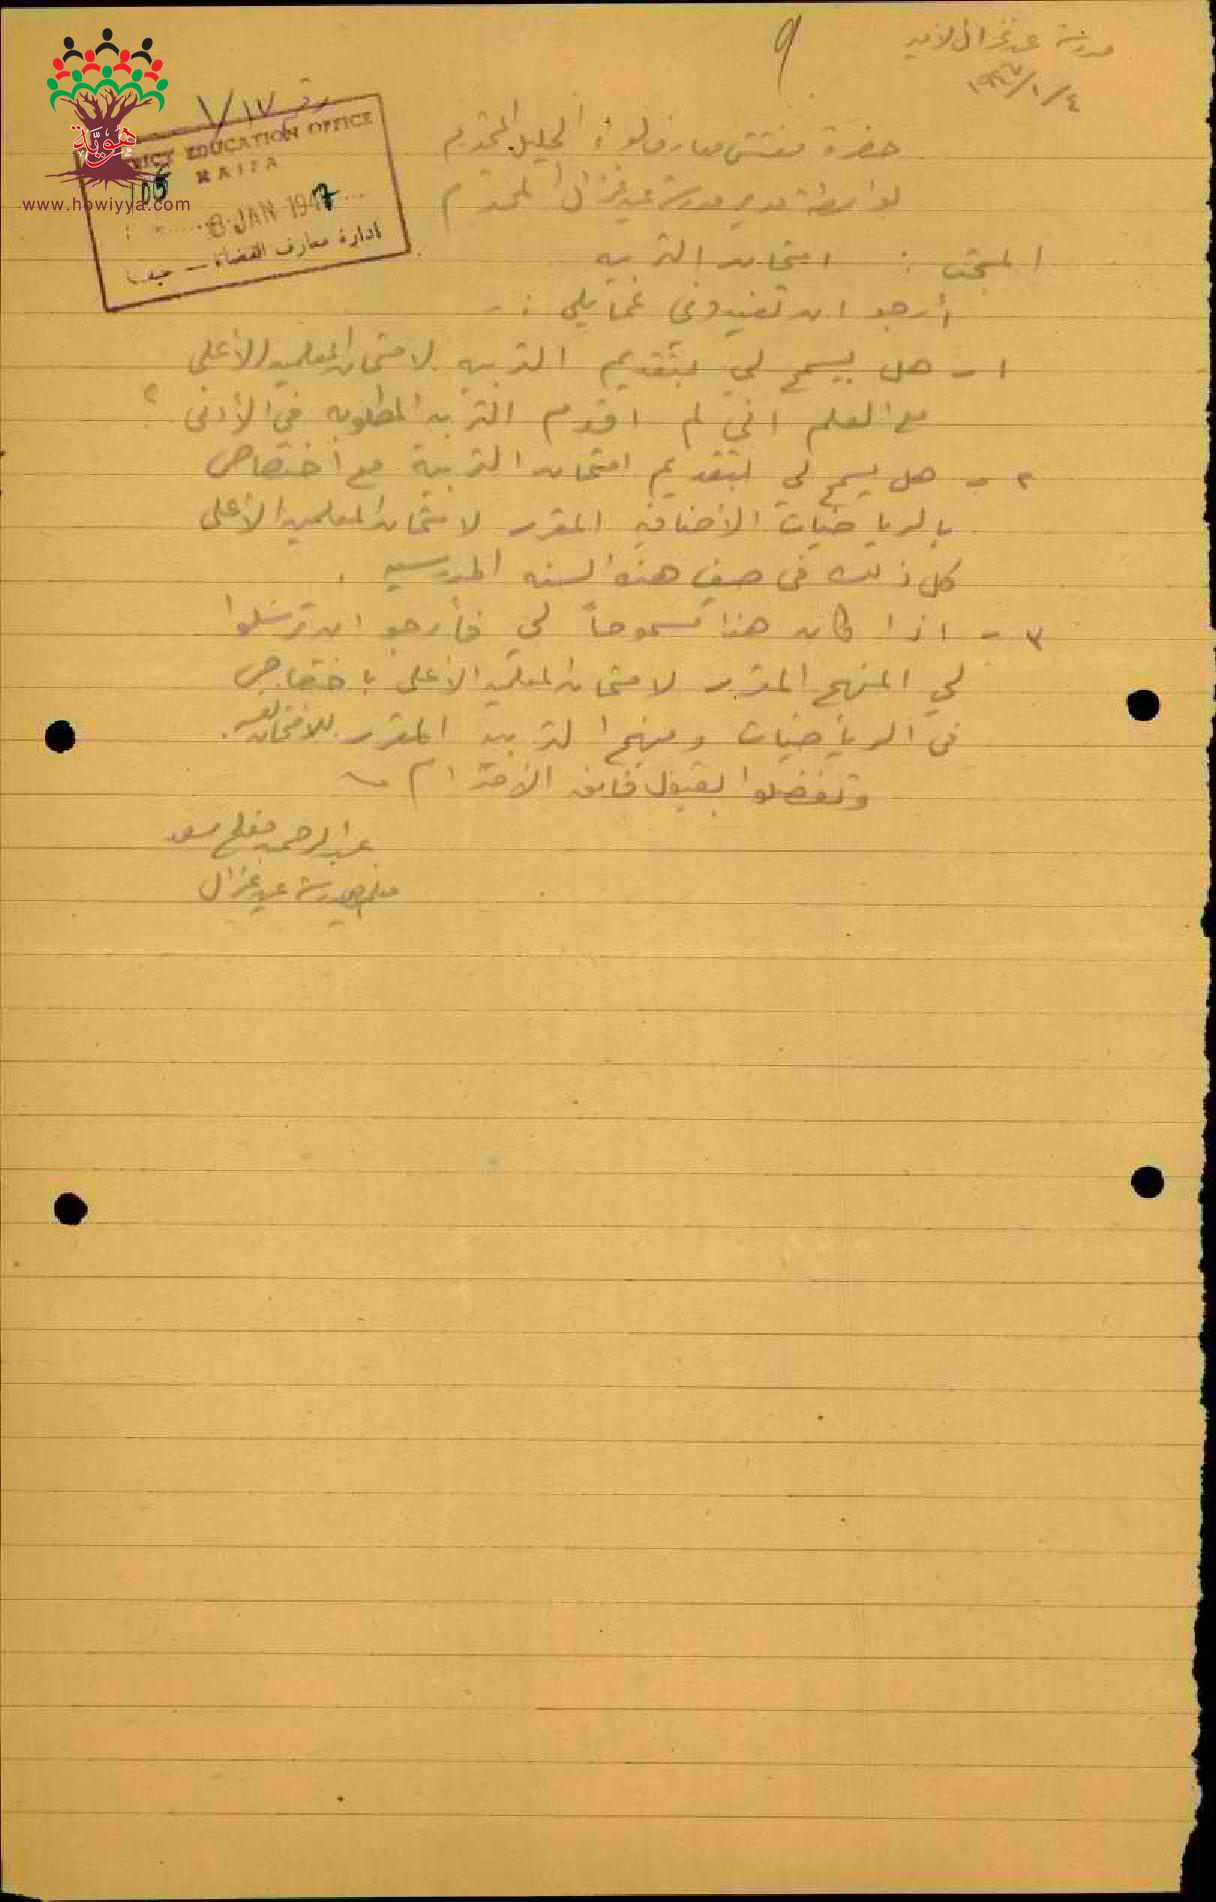 مدرسة عين غزال الأميرية
١٩٤٧/١/٤
٩
رقم ١٧/١
DISTRICT EDUCATION OFFICE
HAIFA
105
8 JAN 1947
ادارة معارف القضاء – حيفا
هُوِيَّة
www.howiyya.com
حضرة مفتش معارف لواء الجليل المحترم
بواسطة مدير مدرسة عين غزال المحترم
المبحث : امتحان التربيه
أرجو ان تفيدوني عما يلي :-
١ - هل يسمح لي بتقديم التربيه لامتحان المعلمين الأعلى
مع العلم اني لم اقدم التربيه المطلوبه في الأدنى ؟
٢ - هل يسمح لي بتقديم امتحان التربية مع اختصاص
بالرياضيات الأضافيه المقرر لامتحان المعلمين الأعلى
كل ذلك في صيف هذه السنه المدرسيه .
٣ - اذا كان هذا مسموحاً لي فأرجو ان ترسلوا
لي المنهج المقرر لامتحان المعلمين الأعلى باختصاص
في الرياضيات ومنهج التربيه المقرر للامتحان نفسه .
وتفضلوا بقبول فائق الاحترام
عبد الرحمن مفلح سعد
معلم بمدرسة عين غزال